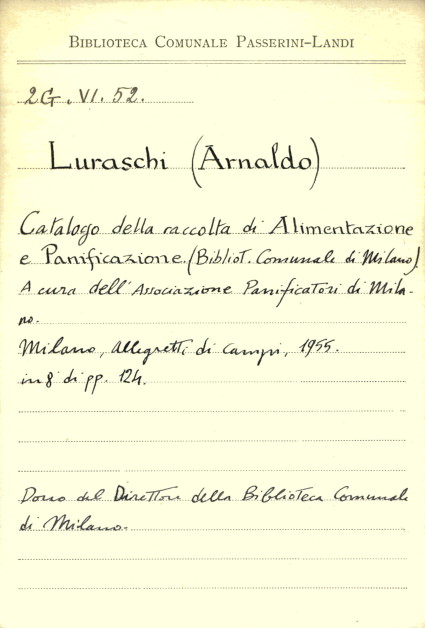 BIBLIOTECA COMUNALE PASSERINI-LANDI
2G. VI. 52.
Luraschi (Arnaldo)
Catalogo della raccolta di Alimentazione
e Panificazione. (Bibliot. Comunale di Milano).
A cura dell'Associazione Panificatori di Mila-
no.
Milano, Allegretti di Campi, 1955.
in 8° di pp. 124.
Dono del Direttore della Biblioteca Comunale
di Milano.